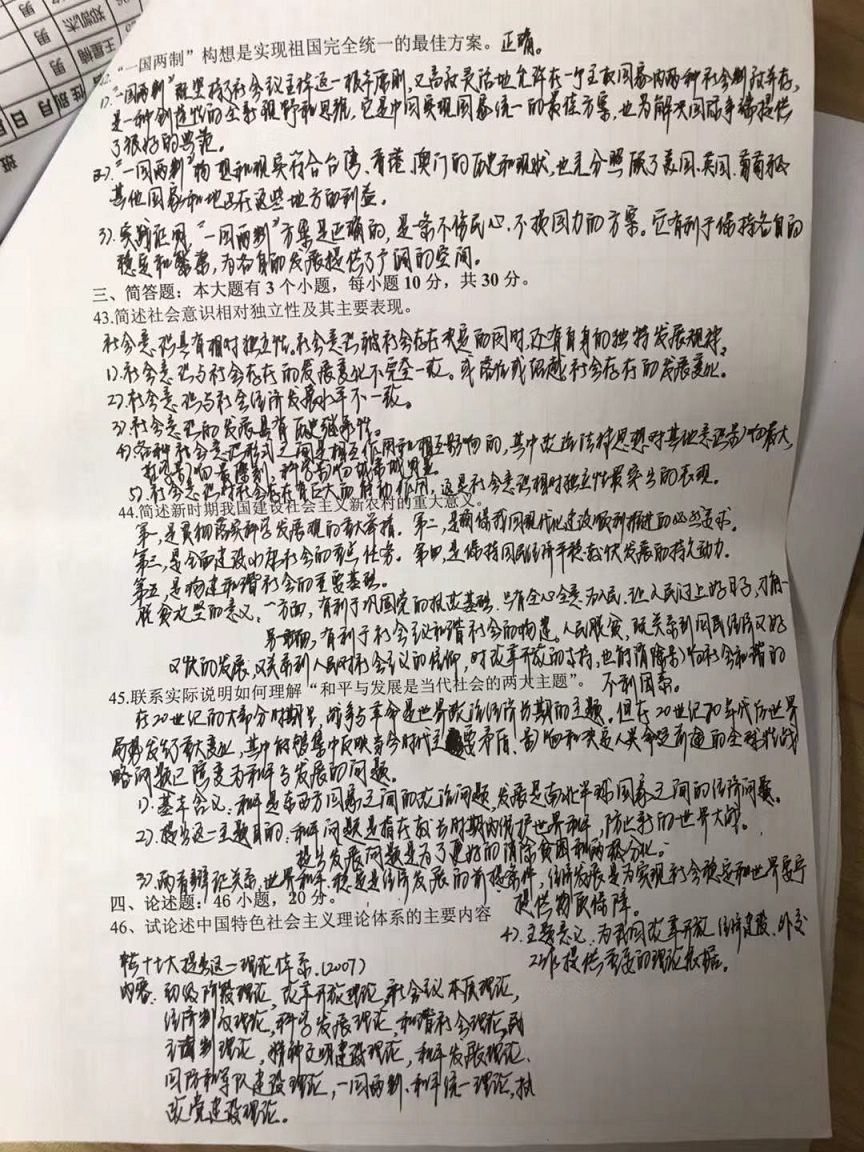 王星楠 男
郑凯杰 男
性别 月 日
班
“一国两制”构想是实现祖国完全统一的最佳方案。正确。
1).“一国两制”既坚持了社会主义主体这一根本原则,又高度灵活地允许在一个主权国家内两种社会制度并存,
是一种创造性的全新视野和思维,它是中国实现国家统一的最佳方案,也为解决国际争端提供
了很好的典范。
2).“一国两制”构想和现实符合台湾、香港、澳门的历史和现状,也充分照顾了美国、英国、葡萄牙
其他国家和地区在这些地方的利益。
3).实践证明,“一国两制”方案是正确的,是一条不伤民心、不损国力的方案。它有利于保持各自的
稳定和繁荣,为各自的发展提供了广阔的空间。
三、简答题:本大题有3个小题,每小题10分,共30分。
43.简述社会意识相对独立性及其主要表现。
社会意识具有相对独立性。社会意识被社会存在决定的同时,还有自身的独特发展规律。
1).社会意识与社会存在的发展变化不完全一致。或落后或超越社会存在的发展变化。
2).社会意识与社会经济发展水平不一致。
3).社会意识的发展具有历史继承性。
4).各种社会意识形式之间是相互作用和相互影响的,其中政治法律思想对其他意识影响最大,
5).社会意识对社会存在有巨大的能动作用,这是社会意识相对独立性最突出的表现。
44.简述新时期我国建设社会主义新农村的重大意义。
第一,是贯彻落实科学发展观的重大举措。第二,是确保我国现代化建设顺利推进的必然要求。
第三,是全面建设小康社会的重点任务。第四,是保持国民经济平稳较快发展的持久动力。
第五,是构建和谐社会的重要基础。
脱贫攻坚的意义:一方面,有利于巩固党的执政基础,只有全心全意为人民,让人民过上好日子,才能
另一方面,有利于社会主义和谐社会的构建。人民脱贫,既关系到国民经济又好
又快的发展,又关系到人民对社会主义的信仰,对改革开放的支持,也能消除影响社会和谐的
不利因素。
45.联系实际说明如何理解“和平与发展是当代社会的两大主题”。
在20世纪的大部分时期里,战争与革命是世界政治经济长期的主题。但在20世纪70年代后世界
局势发生了重大变化,其中能够集中反映当今时代主要矛盾、影响和决定人类命运前途的全球性战
略问题已经变为和平与发展的问题。
1).基本含义:和平是东西方国家之间的政治问题,发展是南北半球国家之间的经济问题。
2).提出这一主题目的:和平问题是旨在较长时期内保护世界和平,防止新的世界大战。
提出发展问题是为了更好的消除贫困和两极分化。
3).两者辩证关系:世界和平稳定是经济发展的前提条件,经济发展是为实现社会稳定和世界安宁
提供物质保障。
4).主题意义:为我国改革开放、经济建设、外交
工作提供重要的理论依据。
四、论述题:46小题,20分。
46、试论述中国特色社会主义理论体系的主要内容
党的十七大提出这一理论体系.(2007)
内容:初级阶段理论,改革开放理论,社会主义本质理论,
经济制度理论,科学发展理论,和谐社会理论,民
主法制理论,精神文明建设理论,和平发展理论,
国防和军队建设理论,一国两制、和平统一理论,执
政党建设理论。